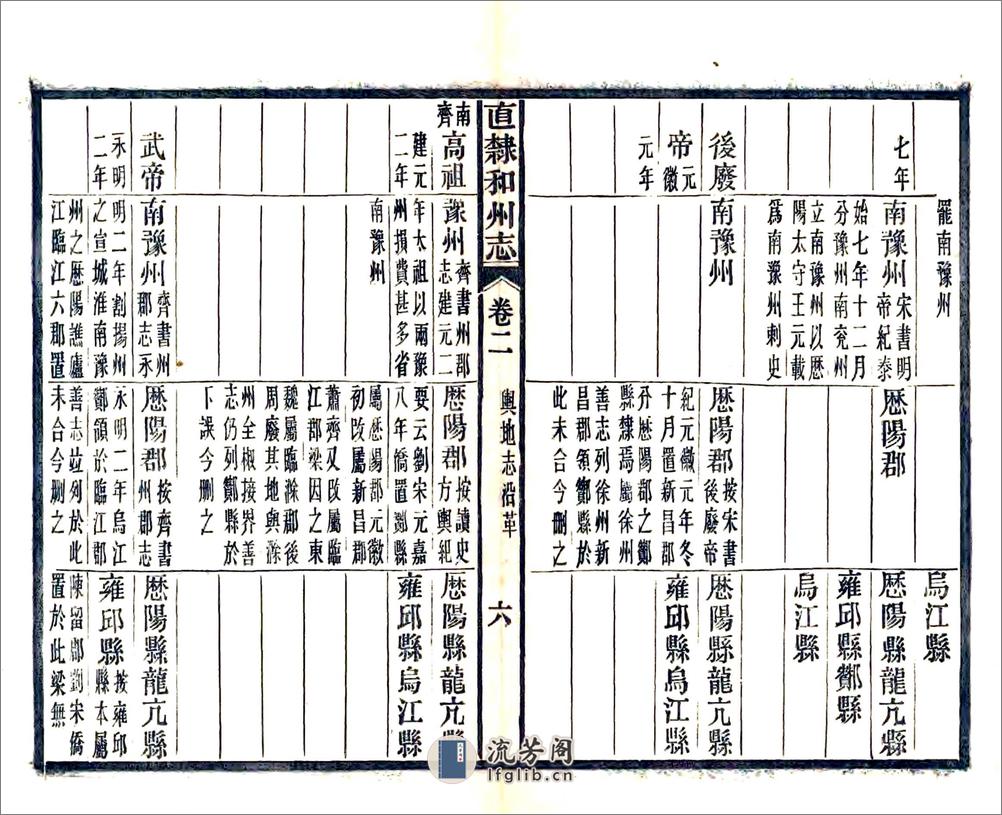 罷南豫州
烏江縣
七年
南豫州宋書明
帝紀泰
始七年十二月
分豫州南兖州
立南豫州以厯
陽太守王元載
爲南豫州刺史
厯陽郡
厯陽縣龍亢縣
雍邱縣酇縣
烏江縣
後廢
帝元徽
元年
南豫州
厯陽郡按宋書
後廢帝
紀元徽元年冬
十月置新昌郡
分厯陽郡之酇
縣隸焉屬徐州
善志列徐州新
昌郡領酇縣於
此未合今刪之
厯陽縣龍亢縣
雍邱縣烏江縣
直隸和州志
卷二
輿地志沿革
六
南齊
高祖
建元
二年
豫州齊書州郡
志建元二
年太祖以兩豫
州損費甚多省
南豫州
厯陽郡按讀史
方輿紀
要云劉宋元嘉
八年僑置酇縣
屬厯陽郡元徽
初改屬新昌郡
蕭齊又改屬臨
江郡梁因之東
魏屬臨滁郡後
周廢其地與滁
州全椒接界善
志仍列酇縣於
下誤今刪之
厯陽縣龍亢縣
雍邱縣烏江縣
武帝
永明
二年
南豫州齊書州
郡志永
明二年割揚州
之宣城淮南豫
州之厯陽譙廬
江臨江六郡置
厯陽郡按齊書
州郡志
永明二年烏江
酇領於臨江郡
善志竝列於此
未合今刪之
厯陽縣龍亢縣
雍邱縣按雍邱
縣本屬
陳留郡劉宋僑
置於此梁無
流芳阁
lfglib.cn